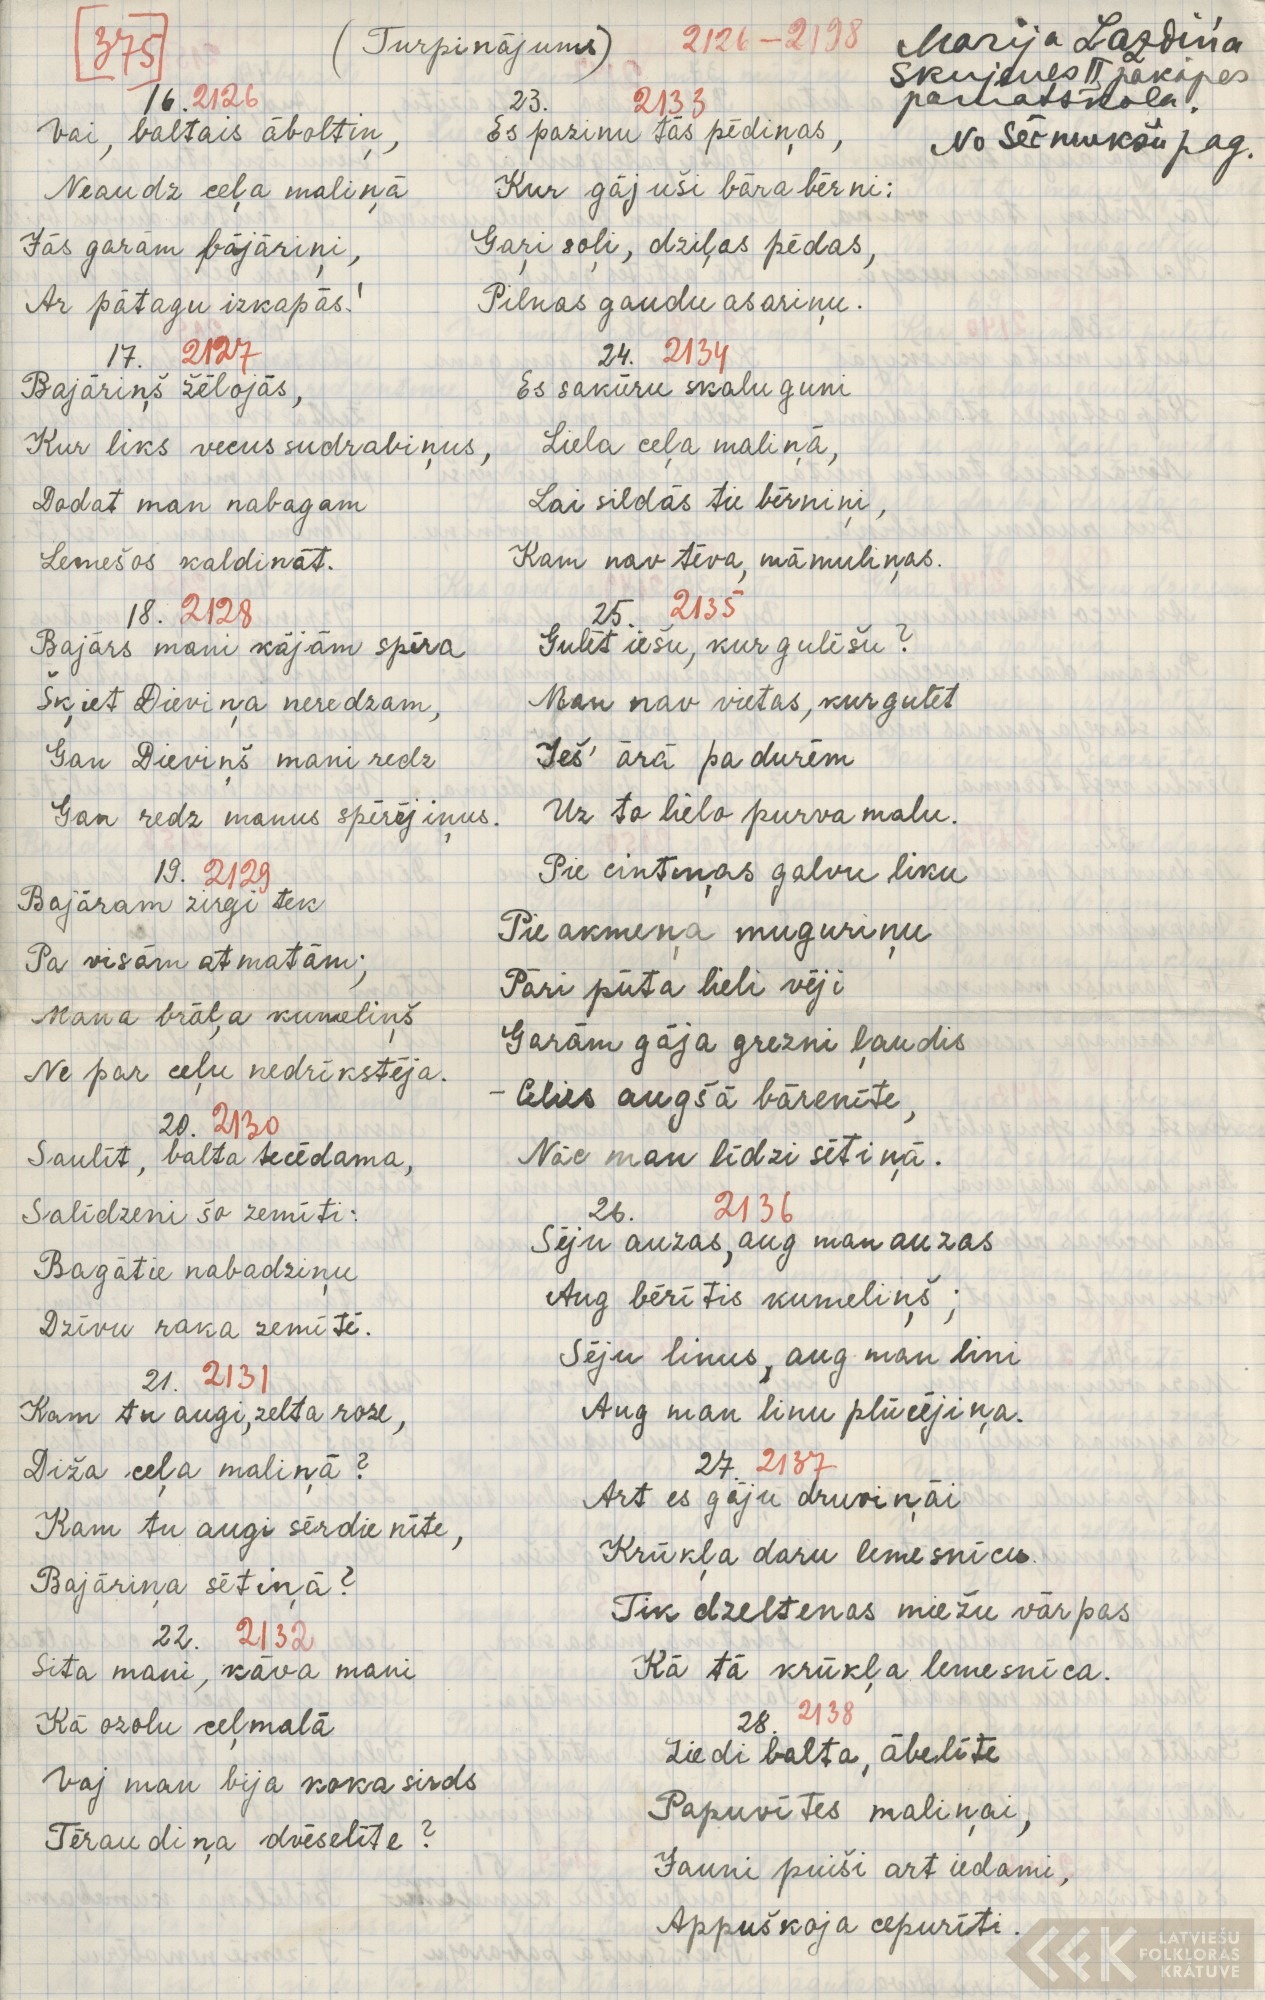 375
(Turpinājums)
2126-2198
Marija Lazdiņa
Skujenes II pakāpes
pamatskola.
No Sērmukšu pag.
16. 2126
Vai, baltais āboltiņ,
Neaudz ceļa maliņā
Jās garām bājāriņi,
Ar pātagu izkapās!
17. 2127
Bajāriņš žēlojās,
Kur liks vecus sudrabiņus,
Dodat man nabagam
Lemešos kaldināt.
18. 2128
Bajārs mani kājām spēra
Šķiet Dieviņa neredzam,
Gan Dieviņš mani redz
Gan redz manus spērējiņus.
19. 2129
Bajāram zirgi tek
Pa visām atmatām;
Mana brāļa kumeliņš
Ne par ceļu nedrīkstēja.
20. 2130
Saulīt, balta tecēdama,
Salīdzeni šo zemīti:
Bagātie nabadziņu
Dzīvu raka zemītē.
21. 2131
Kam tu augi, zelta roze,
Diža ceļa maliņā?
Kam tu augi sērdienīte,
Bajāriņa sētiņā?
22. 2132
Sita mani, kāva mani
Kā ozolu ceļmalā
Vaj man bija koka sirds
Tēraudiņa dvēselīte?
23. 2133
Es pazinu tās pēdiņas,
Kur gājuši bāra bērni:
Gaŗi soļi, dziļas pēdas,
Pilnas gaudu asariņu.
24. 2134
Es sakūru skalu guni
Liela ceļa maliņā,
Lai sildās tie bērniņi,
Kam nav tēva, māmuliņas.
25. 2135
Gulēt iešu, kur gulēšu?
Man nav vietas, kur gulēt
Ieš' ārā pa durēm
Uz to lielo purva malu.
Pie cintiņas galvu liku
Pie akmeņa muguriņu
Pāri pūta lieli vēji
Garām gāja grezni ļaudis
- Celies augšā bārenīte,
Nāc man līdzi sētiņā.
26. 2136
Sēju auzas, aug man auzas
Aug bērītis kumeliņš;
Sēju linus, aug man lini
Aug man linu plūcējiņa.
27. 2137
Art es gāju druviņāi
Krūkļa daru lemesnīcu
Tik dzeltenas miežu vārpas
Kā tā krūkļa lemesnīca.
28. 2138
Ziedi balta, ābelīte
Papuvītes maliņai,
Jauni puiši art iedami,
Appuškoja cepurīti.
LATVIEŠU
FOLKLORAS
KRĀTUVE